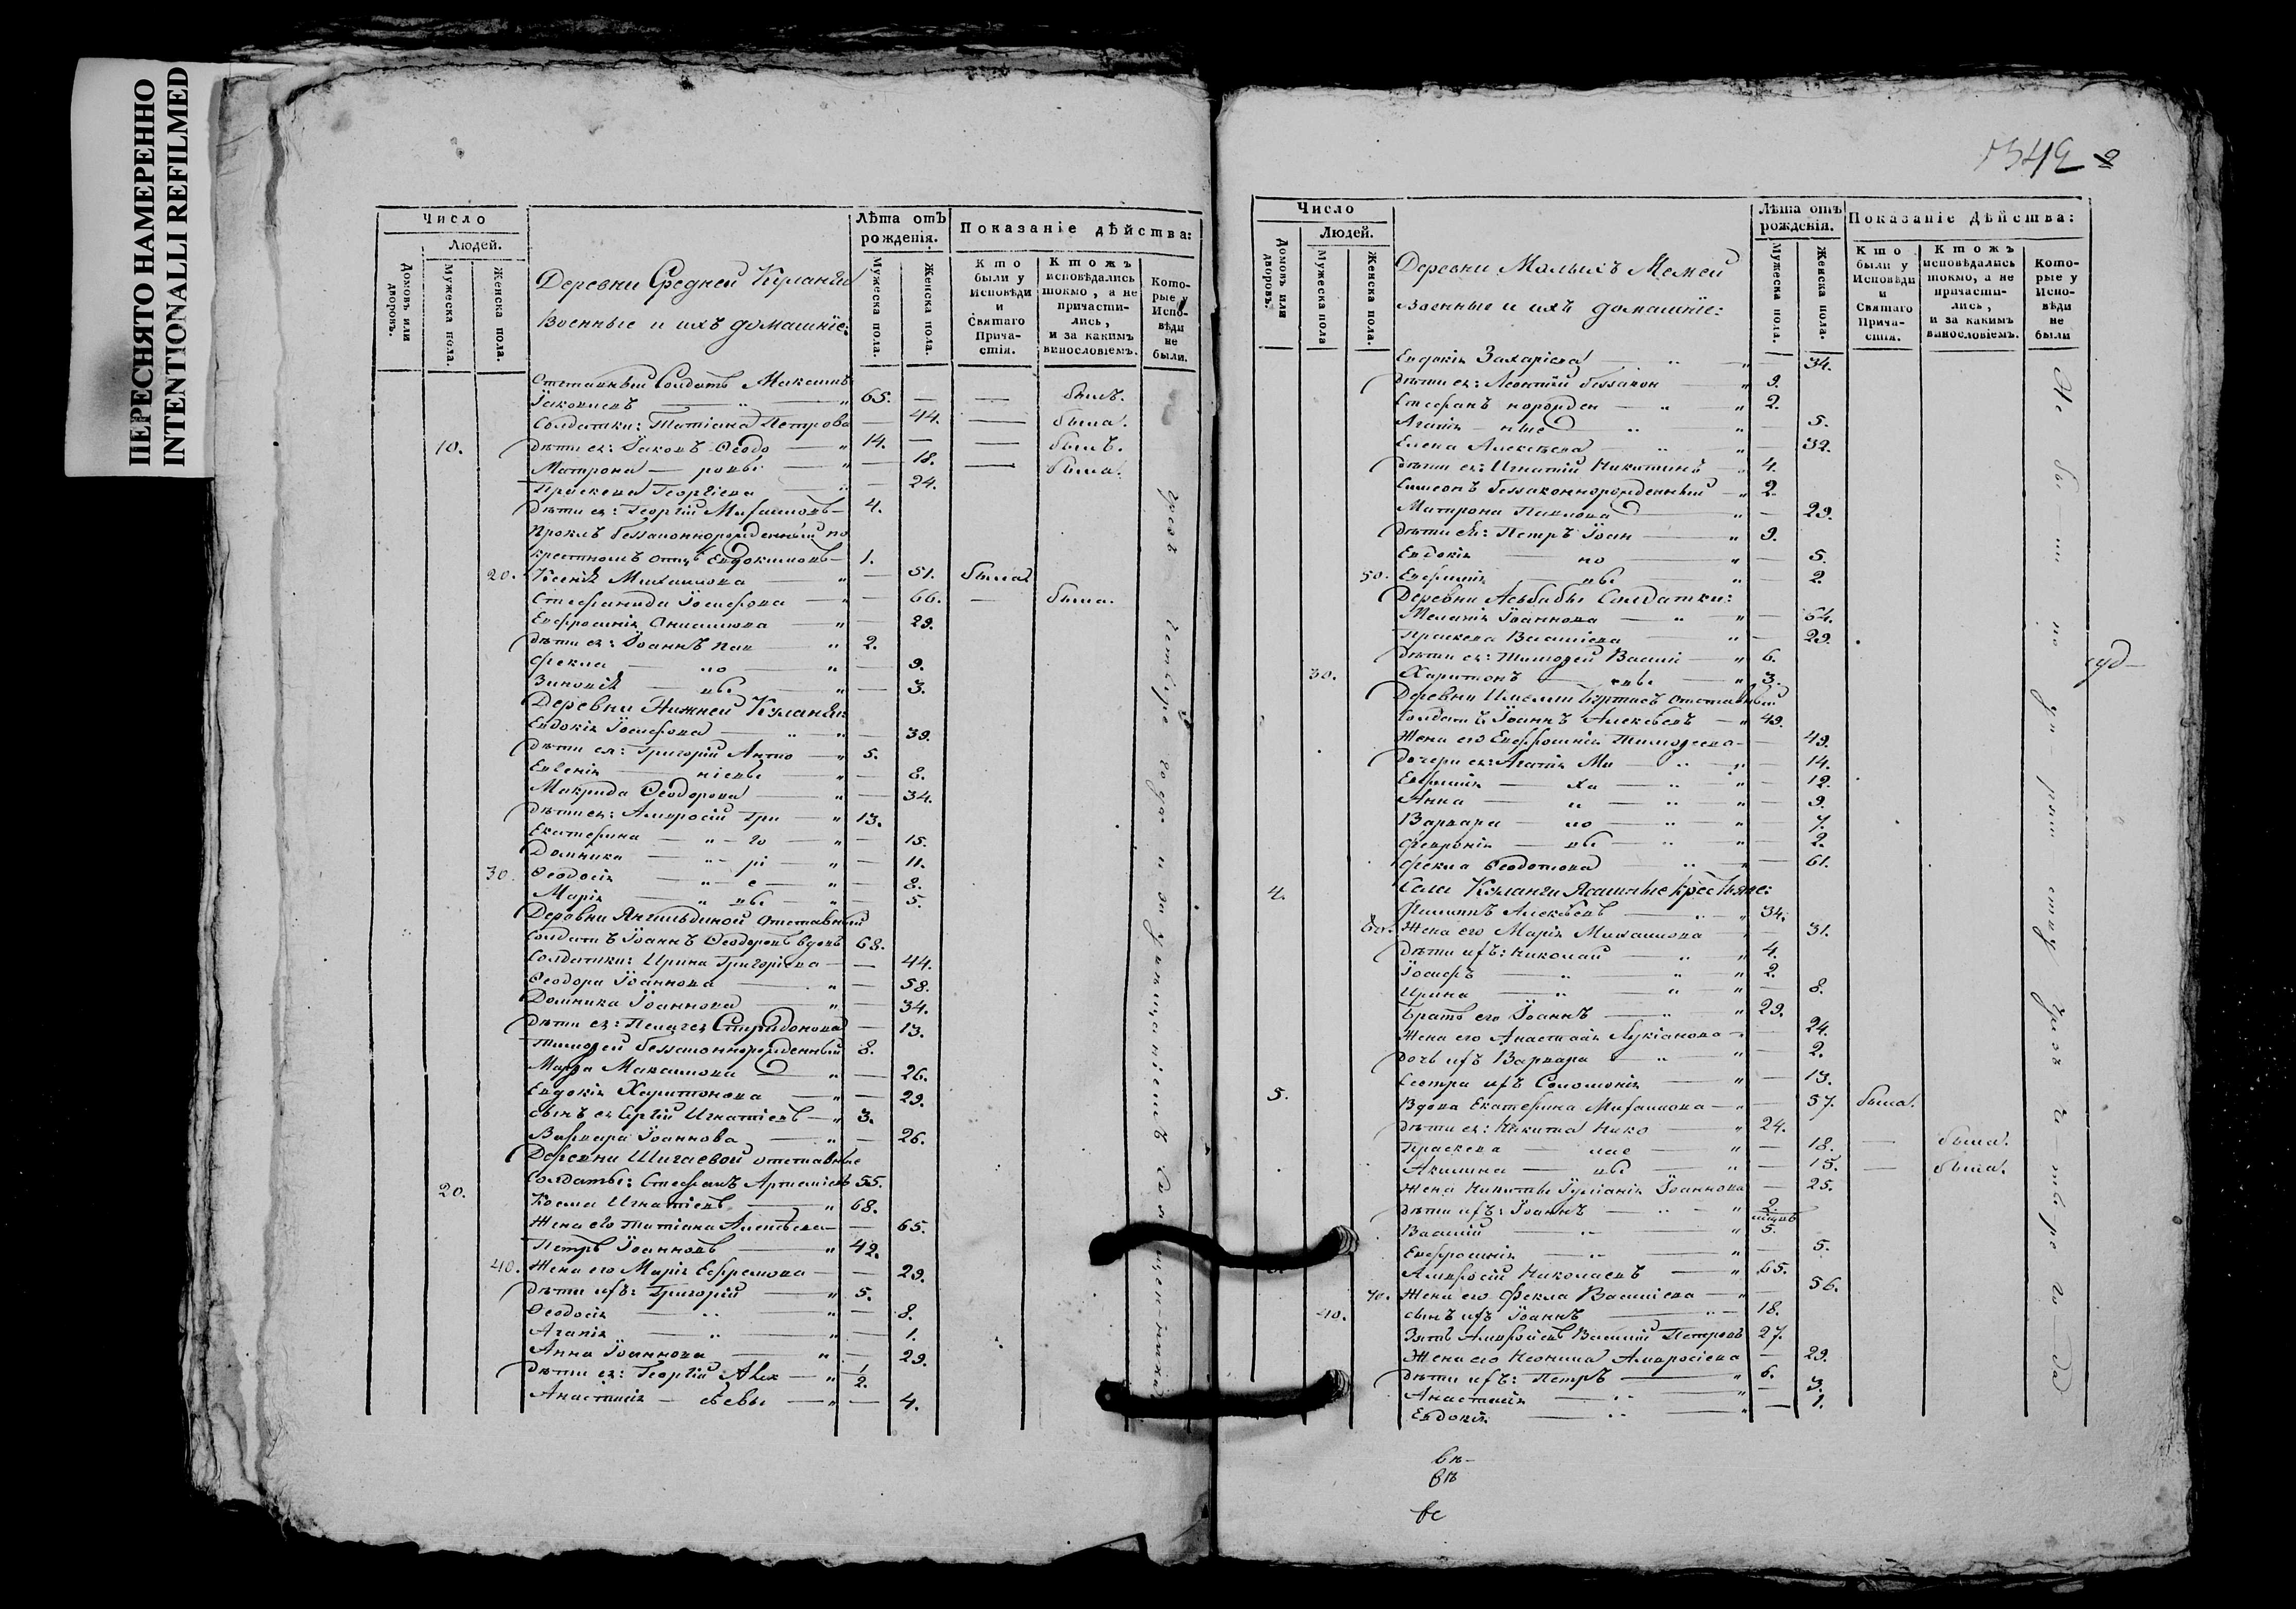 ПЕРЕСНЯТО НАМЕРЕННО
INTENTIONALLI REFILMED
Число
Людей.
Домовъ или дворовъ.
Мужеска пола.
Женска пола.
Деревни Средней Куланги
Военные и ихъ домашніе:
Лѣта отъ рожденія.
Мужеска пола.
Женска пола.
Показаніе дѣйства:
Кто были у Исповѣди и Святаго Прича-стія.
Ктожъ исповѣдались токмо, а не причасти-лись, и за какимъ винословіемъ.
Кото-рые у Испо-вѣди не были.
Отставный Солдатъ Максимъ
Іаковлевъ 65. — — былъ.
Солдатки: Татіана Петрова — 44. — была.
10. Дѣти ея: Іаковъ Ѳеодо — 14. — — былъ.
Матрона — ровы — — 18. — была.
Праскева Георгіева — 24.
Дѣти ея: Георгій Михаиловъ — 4.
Проклъ беззаконнорожденный по
крестномъ отцѣ Евдокимовъ — 1.
20. Ксенія Михаилова — 51. была
Стефанида Іосифова — 66. — была.
Евфросинія Онисимова — 29.
Дѣти ея: Іоаннъ Пав — 2.
Ѳекла — ло — 9.
Зиновія — вы — 3.
Деревни Нижней Куланги
Евдокія Іосифова — 39.
Дѣти ея: Григорій Анто — 5.
Евгенія — ніевы — 8.
Макрида Ѳеодорова — 34.
Дѣти ея: Амвросій Гри — 13.
Екатерина — го — 15.
Домника — рі — 11.
30. Ѳеодосія — е — 8.
Марія — вы — 5.
Деревни Янгильдиной Отставный
Солдатъ Іоаннъ Ѳеодоровъ вдовъ 68.
Солдатки: Ирина Григоріева — 44.
Ѳеодора Іоаннова — 58.
Домника Іоаннова — 34.
Дѣти ея: Пелагея Спиридонова — 13.
Тимоѳей беззаконнорожденный 8.
Марѳа Максимова — 26.
Евдокія Харитонова — 29.
сынъ ея Сергій Игнатіевъ — 3.
Варвара Іоаннова — 26.
Деревни Шигаевой отставные
Солдаты: Стефанъ Артемьевъ 55.
20. Косма Игнатіевъ — 68.
Жена его Татіана Алексѣева — 65.
Петръ Іоанновъ — 42.
40. Жена его Марія Ефремова — 29.
Дѣти ихъ: Григорій — 5.
Ѳеодосія — 8.
Агапія — 1.
Анна Іоаннова — 29.
Дѣти ея: Георгій Алек — 1/2.
Анастасія — сѣевы — 4.
1342
Число
Людей.
Домовъ или дворовъ.
Мужеска пола
Женска пола.
Деревни Малыхъ Мемей
Военные и ихъ домашніе:
Лѣта отъ рожденія.
Мужеска пола.
Женска пола.
Показаніе Дѣйства:
Кто были у Исповѣди и Святаго Прича-стія.
Ктожъ исповѣдались токмо, а не причасти-лись, и за какимъ винословіемъ.
Кото-рые у Испо-вѣди не были
Евдокія Захаріева — 34.
Дѣти ея: Леонтій беззакон — 9.
Стефанъ норожден — 2.
Агапія — ные — 5.
Елена Алексѣева — 32.
Дѣти ея: Игнатій Никитинъ — 4.
Симеонъ беззаконнорожденный — 2.
Матрона Павлова — 29.
Дѣти ея: Петръ Іоан — 9.
Евдокія — но — 5.
50. Евфимія — вы — 2.
Деревни Асьбабы Солдатки:
Меланія Іоаннова — 64.
Праскева Васильева — 29.
Дѣти ея: Тимоѳей Васил — 6.
30. Харитонъ — евы — 3.
Солдатъ Іоаннъ Алексѣевъ — 49.
Жена его Евфросинія Тимоѳеева — 49.
Дочери ея: Агапія Ми — 14.
Евфимія — ха — 12.
Анна — и — 9.
Варвара — ло — 7.
Февронія — вы — 2.
Ѳекла Ѳеодотова — 61.
4. Села Куланги Ясашные крестьяне:
Филиппъ Алексѣевъ — 34.
60. Жена его Марія Михаилова — 31.
Дѣти ихъ: Николай — 4.
Іосифъ — 2.
Ирина — 8.
Братъ его Іоаннъ — 29.
Жена его Анастасія Лукіанова — 24.
Дочь ихъ Варвара — 2.
Сестра ихъ Соломонія — 13.
5. Вдова Екатерина Михаилова — 57. была.
Дѣти ея: Никита Нико — 24.
Праскева — лае — 18. — была.
Акилина — вы — 15. — была.
Жена Никиты Іуліанія Іоаннова — 25.
Дѣти ихъ: Іоаннъ — 2.
Василій — 5.
Евфросинія — 5.
Амвросій Николаевъ — 65.
70. Жена его Ѳекла Васильева — 56.
40. сынъ ихъ Іоаннъ — 18.
Зять Амвросіевъ Василій Петровъ 27.
Жена его Неонила Амвросіева — 29.
Дѣти ихъ: Петръ — 6.
Анастасія — 3.
Евдокія — 1.